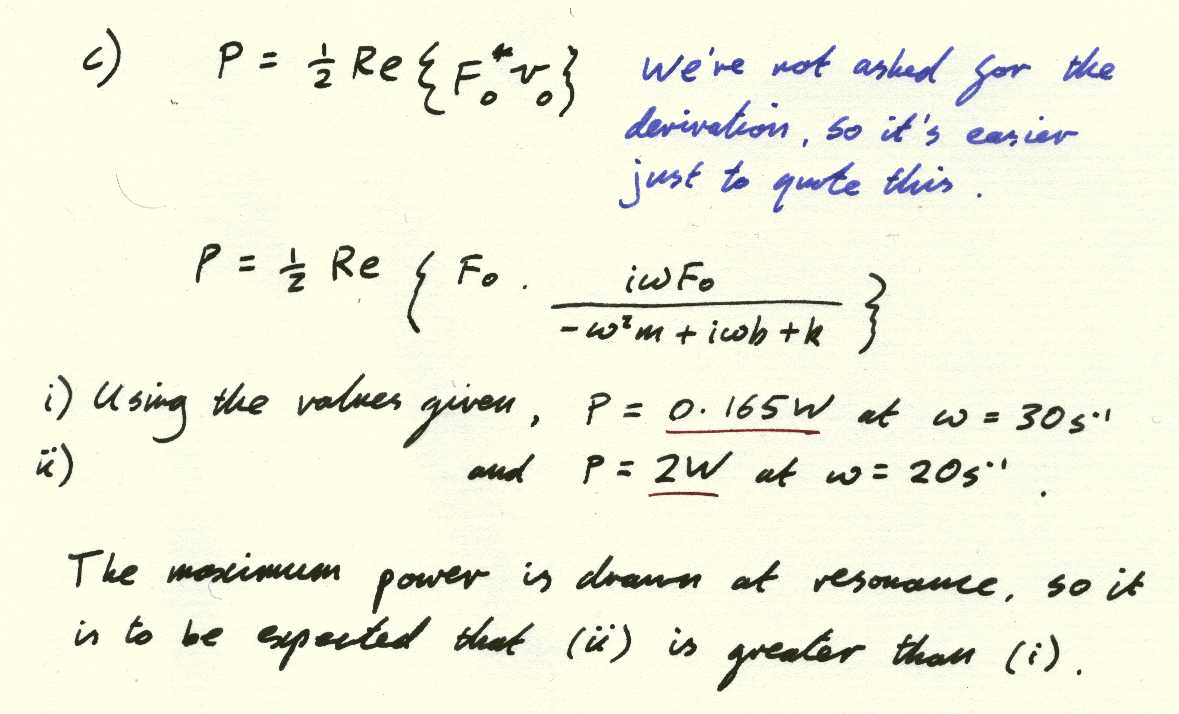 c) P = ½ Re{F₀*v₀} We're not asked for the
derivation, so it's easier
just to quote this.
P = ½ Re { F₀ . iωF₀ / (-ω²m + iωb + k) }
i) Using the values given, P = 0.165W at ω = 30s⁻¹
ii) and P = 2W at ω = 20s⁻¹.
The maximum power is drawn at resonance, so it
is to be expected that (ii) is greater than (i).